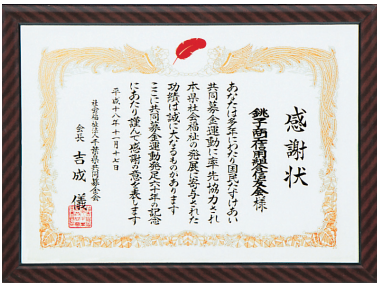 感謝状
銚子商工信用組合信友会様
あなたは多年にわたり国民たすけあい
共同募金運動に率先協力され
本県社会福祉の発展に寄与された
功績は誠に大なるものがあります
ここに共同募金運動発足六十年の記念
にあたり謹んで感謝の意を表します
平成十八年十一月十七日
社会福祉法人千葉県共同募金会
会長 吉成 儀